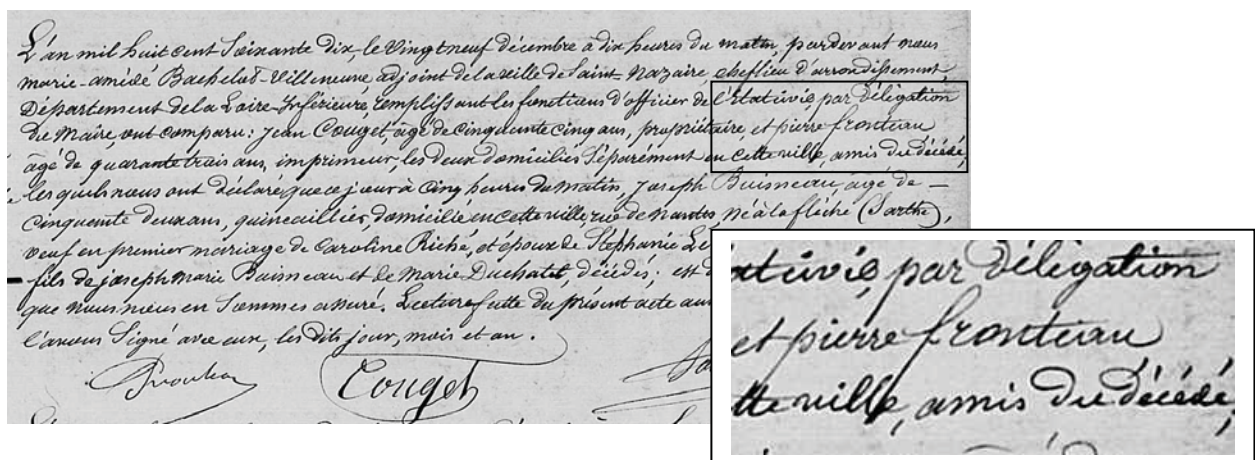 L'an mil huit cent soixante dix, le vingt neuf décembre à dix heures du matin, pardevant nous
marie-amidé Bachelot-Villeneuve, adjoint de la ville de Saint-Nazaire, chef lieu d'arrondissement,
Département de la Loire-Inférieure, remplissant les fonctions d'officier de l'état civil, par délégation
du Maire, ont comparu : Jean Couget, âgé de cinquante cinq ans, propriétaire et pierre fronteau
âgé de quarante trois ans, imprimeur, les deux domiciliés séparément en cette ville, amis du décédé,
lesquels nous ont déclaré que ce jour à cinq heures du matin, Joseph Buisneau, âgé de —
cinquante deux ans, quincaillier, domicilié en cette ville, rue de nantes né à la flèche (Sarthe),
veuf en premier mariage de Caroline Riché, et époux de Stéphanie Le
fils de joseph marie Buisneau et de Marie Duchatel, décédés ; est d
que nous nous en sommes assuré. Lecture faite du présent acte aux
l'avons signé avec eux, les dits jour, mois et an.
Couget
at civil, par délégation
et pierre fronteau
tte ville, amis du décédé,